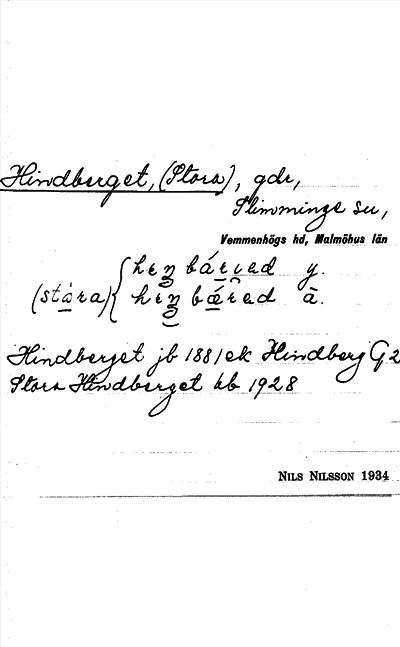 Hindberget, (Stora), gdr,
Slimminge sn,
Vemmenhögs hd, Malmöhus län
hen bárred y.
(stóra) hen bæred ä.
Hindberget jb 1881 ek Hindberg G2
Stora Hindberget kb 1928
NILS NILSSON 1934